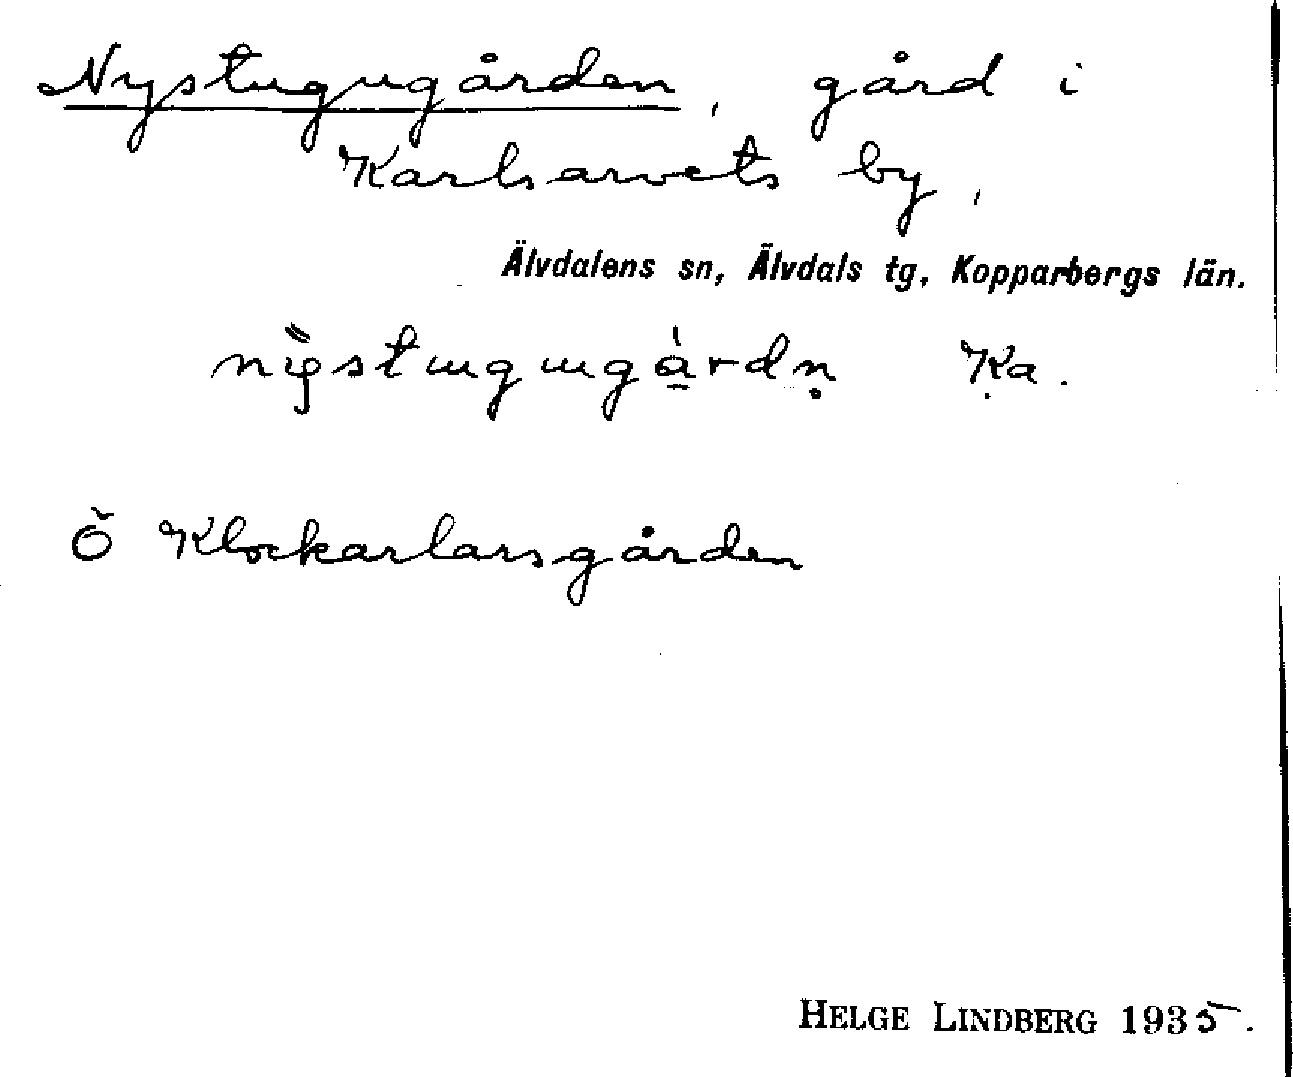 Nystugugården, gård i
Karlsarvets by,
Älvdalens sn, Älvdals tg, Kopparbergs län.
Ka.
Ö Klockarlarsgården
HELGE LINDBERG 1935.